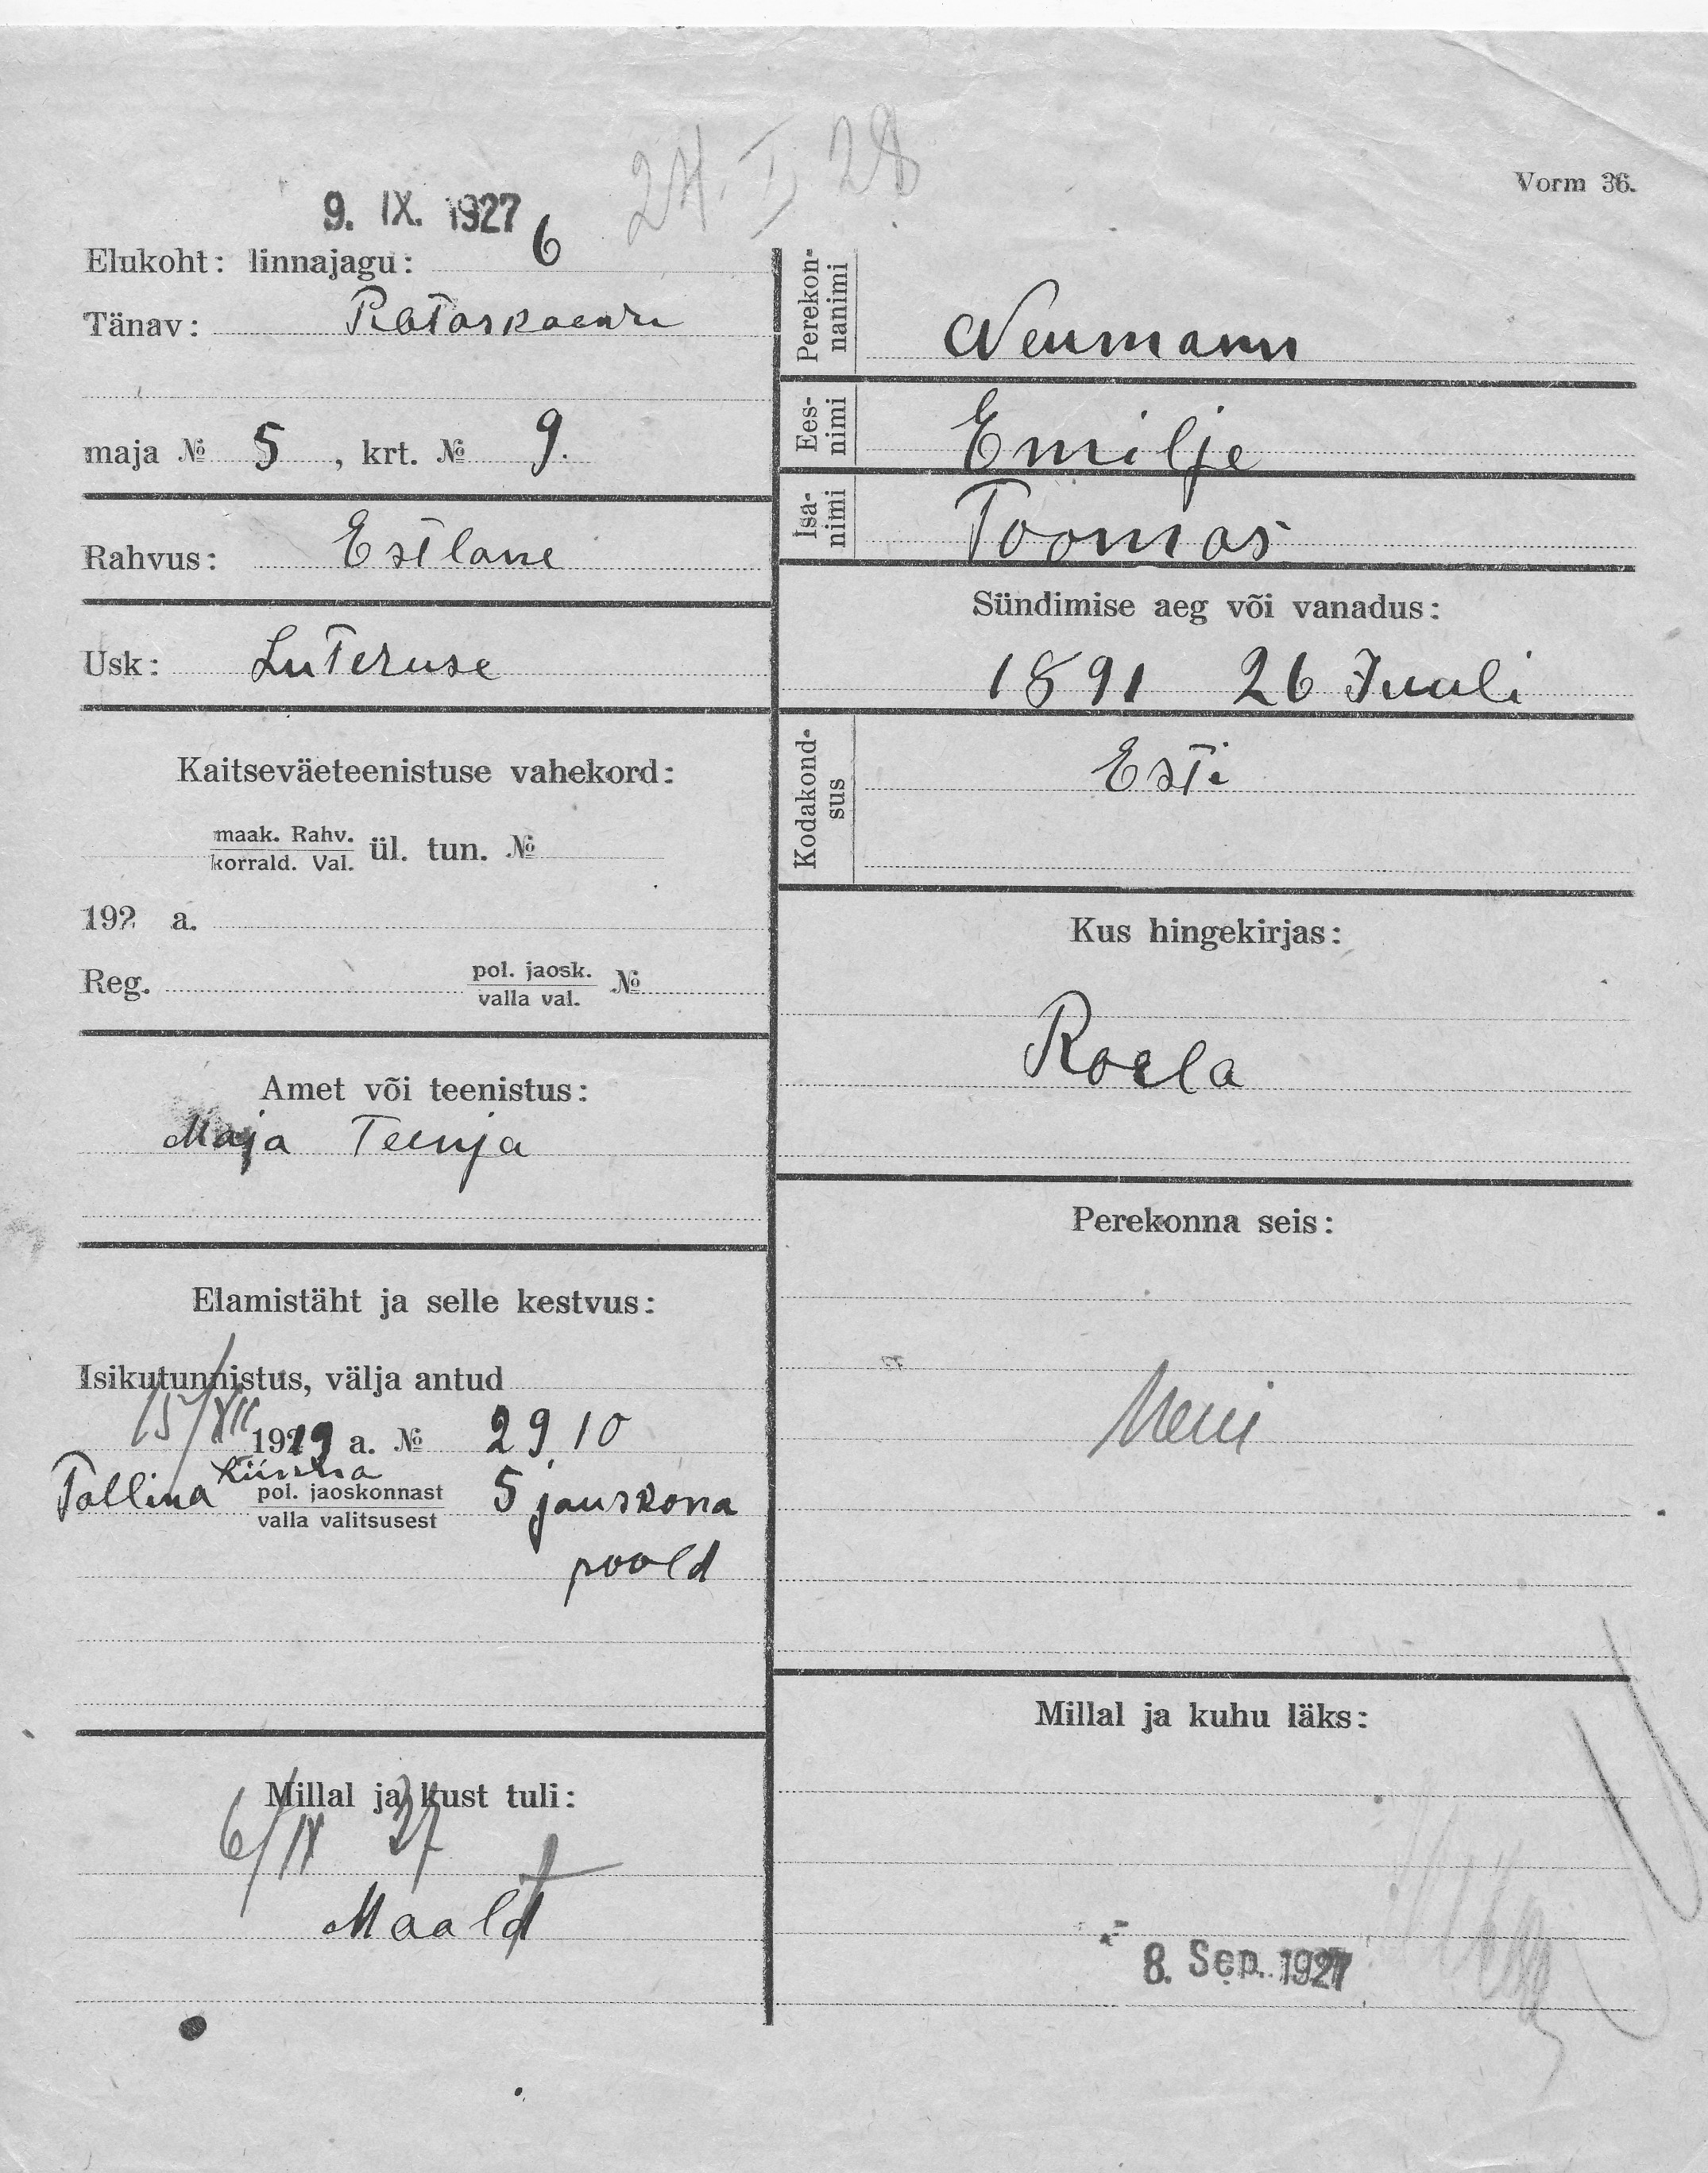 24. I 28
Vorm 36.
9. IX. 1927
Elukoht: linnajagu: 6
Tänav: Rataskaevu
maja № 5, krt. № 9.
Rahvus: Estlane
Usk: Luteruse
Kaitseväeteenistuse vahekord:
maak. Rahv.
korrald. Val.
ül. tun. №
192 a.
Reg. pol. jaosk.
valla val.
№
Amet või teenistus:
Maja Teenja
Elamistäht ja selle kestvus:
Isikutunnistus, välja antud
15/XII 1919 a. № 2910
Tallina pol. jaoskonnast 5 jauskona
valla valitsusest
poold
Millal ja kust tuli:
6/IX 27
Maalt
Perekon-
nanimi
Neumann
Ees-
nimi
Emilje
Isa-
nimi
Toomas
Sündimise aeg või vanadus:
1891 26 Juuli
Kodakond-
sus
Esti
Kus hingekirjas:
Roela
Perekonna seis:
Millal ja kuhu läks:
8. Sep. 1927